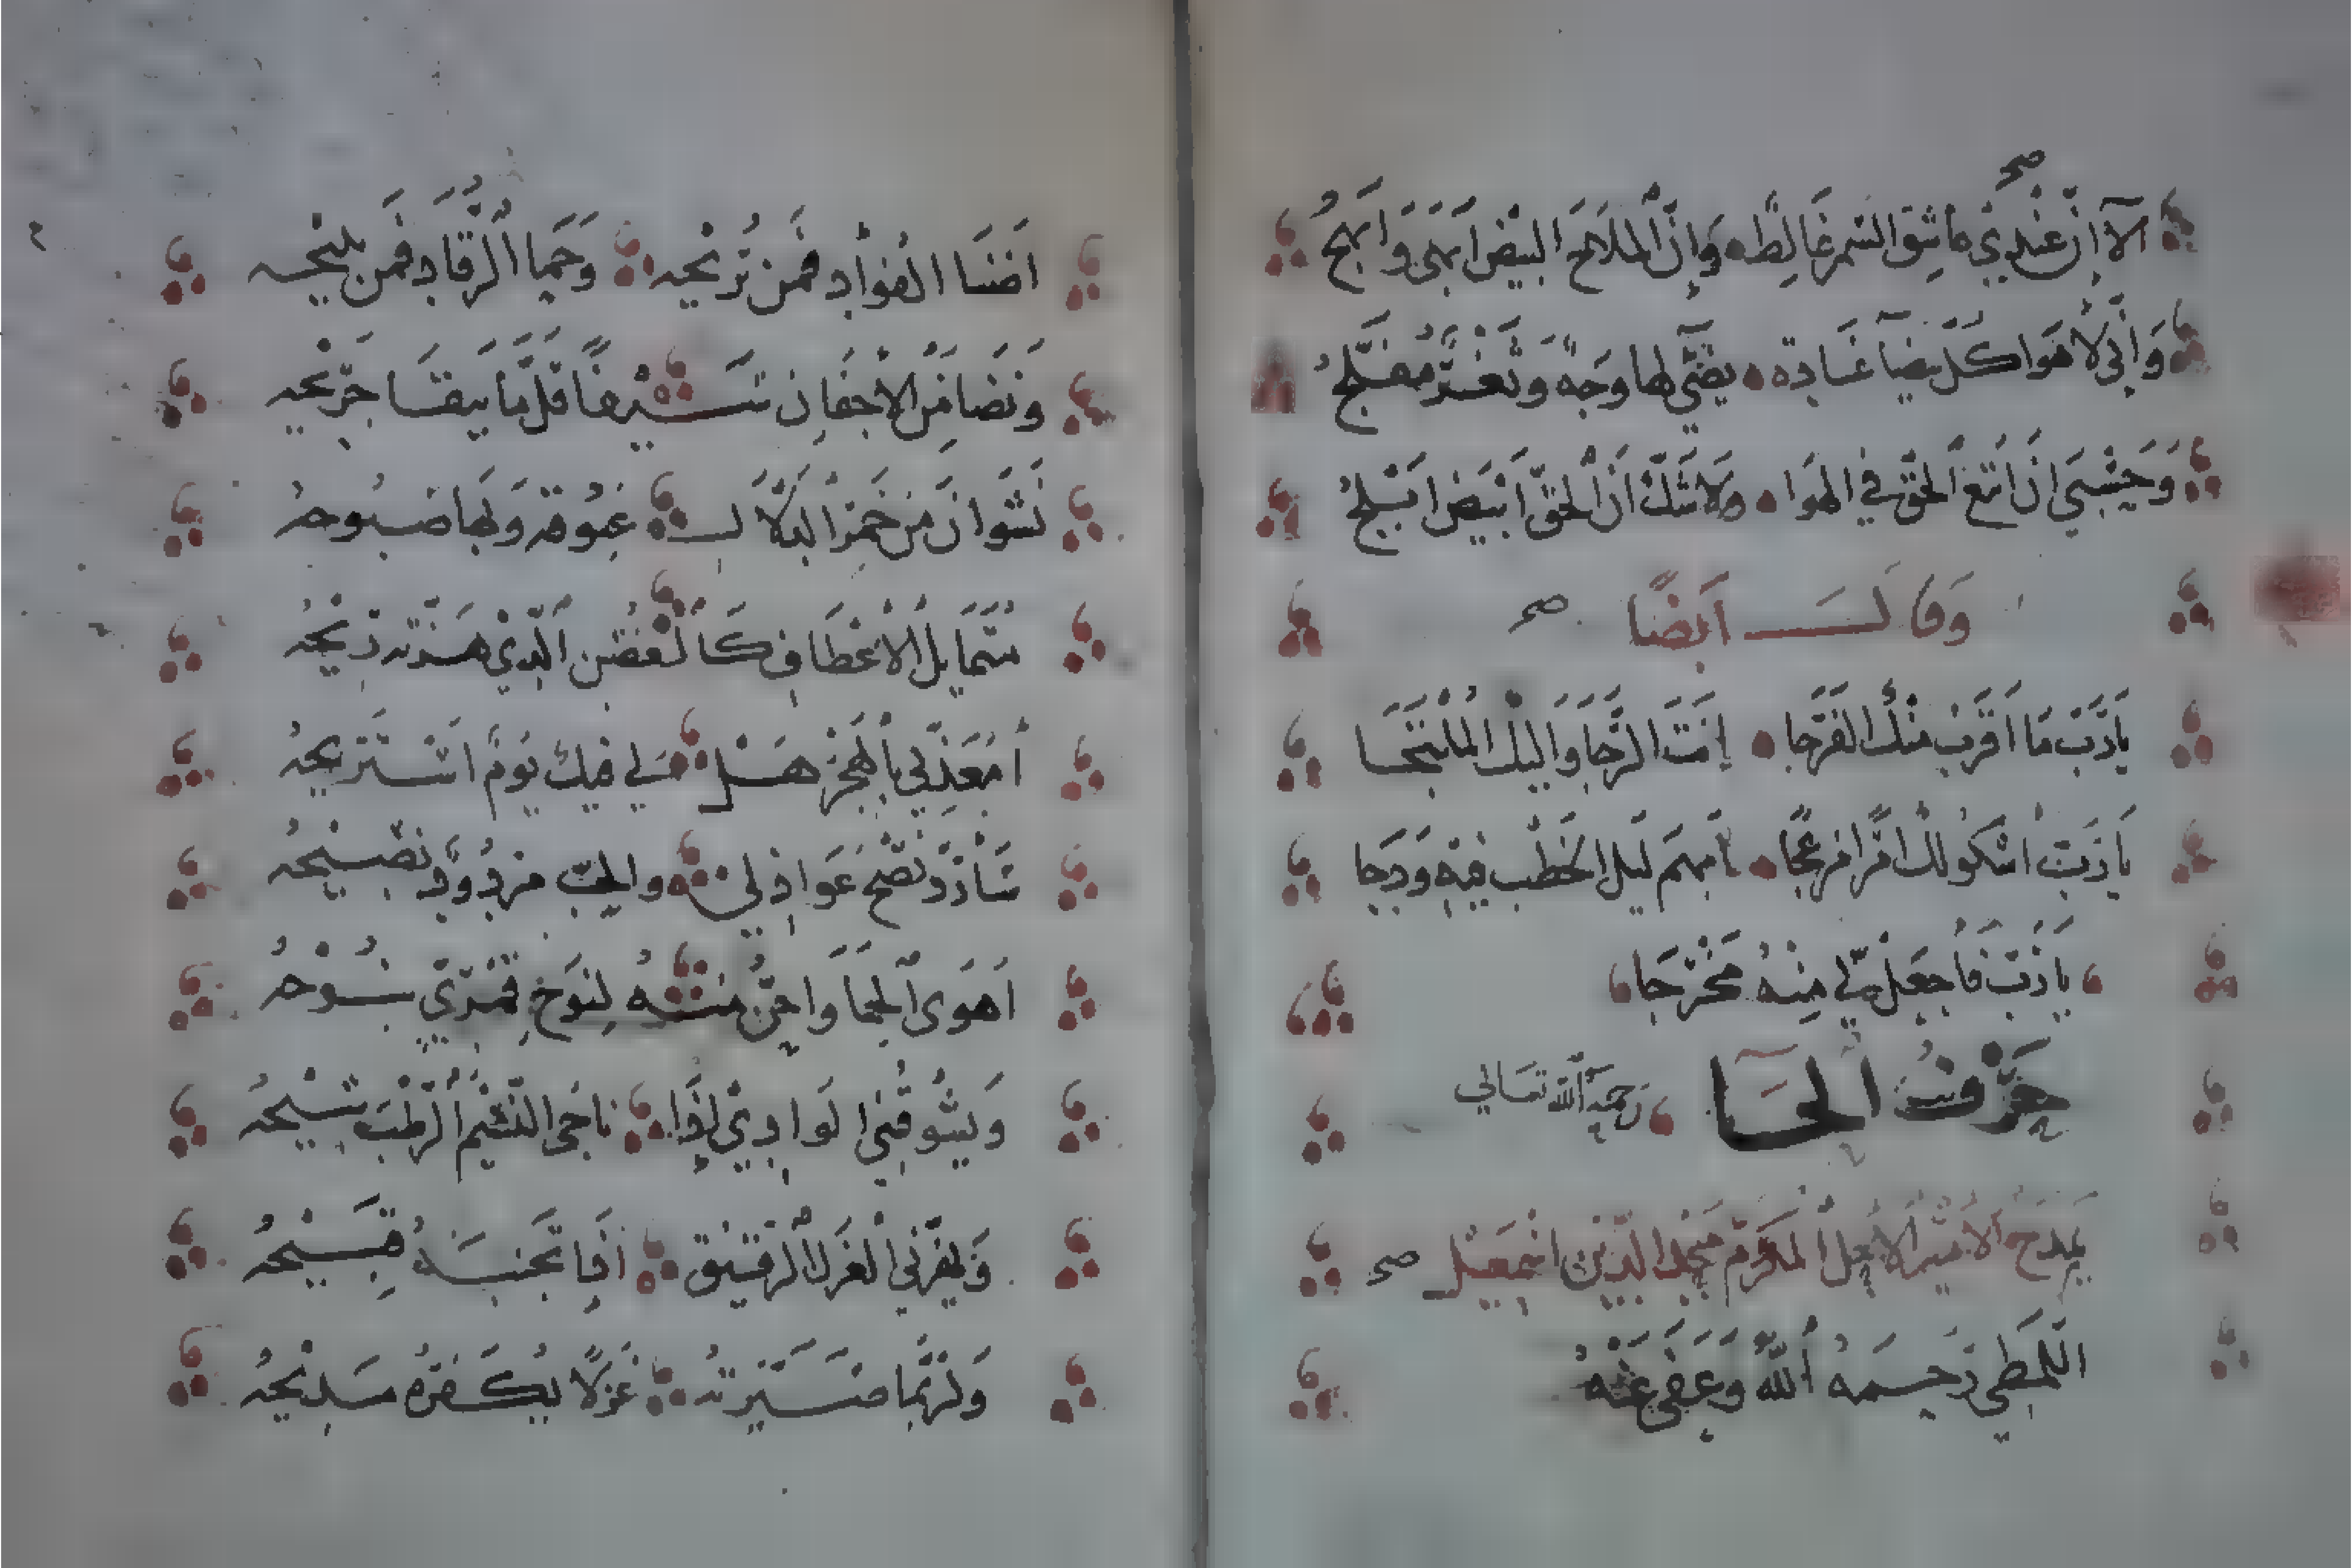 صح
الآ اِنّ عِنْدِي عاشِق السّمر غَالِطٌ وَاِنَّ المِلَاحَ البيْضَ اَبهَى وَابهجُ
وَاِنِّي لأهوَا كلّ بيضآ غَادة يضيّ لها وجهٌ وثغرٌ مفلّجُ
وَحَسْبيَ اَن اتبع الحقّ في الهوَا ولا شكّ انّ الحقّ اَبْيَض اَبْلجُ
وَقَالَ اَيضًا صح
يَا رَبّ مَا اَقرَب منْك الفَرَجا اِنتَ الرَّجا وَاليك الملْتَجَا
يَا رَبّ اشكو لك امرًا مزعجًا اَبهم ليل الخطب فيه وَدجا
يَا رَبّ فاجعَل لي مِنهُ مَخْرَجَا
حَرْفُ الحَآ رَحمهُ اللّه تعَالي
يَمدَحُ الاَميْر الاَجلّ المكرّم مَجْد الدّين اسْمَعيْل صح
اللمطي رَحِمهُ اَللّه وَعَفي عَنْهُ
اَضنَا الفُؤاد فمَن تُرِيْحه وَحَمَا الرّقاد فمَن يبيْحه
وَنَضَا مَن الاَجفَان سَيْفًا قلّمَا يبقَا جَرِيْحه
نَشوَانَ من خَمْر الدلاَل غبُوقه وَلهَا صَبُوحهُ
متَمَايل الاَعْطَاف كَالغُصْن الّذيْ هَزّته رِيْحُه
اَمُعَذِّبي بالهَجْر هَل لي فيك يَومٌ اَسْتَرِيحهُ
سَأردّ نصْح عَوَاذِلي والحبّ مَردُودٌ نصيْحُه
اَهوَى الحمَا وَاحنّ منهُ لِنوْح قمْرِيّ يَنُوْحُ
وَيشُوقُني الوادِيْ اِذَا نَاجَى النّسِيْم الرّطْبَ شيْحهُ
وَيغرّني الغَزَل الرقيْق اِذَا تجَنّبَهُ قَبِيْحُه
وَلرُبّما صَيّرتهُ غزَلًا يُكَفّرُه مَدِيْحُه